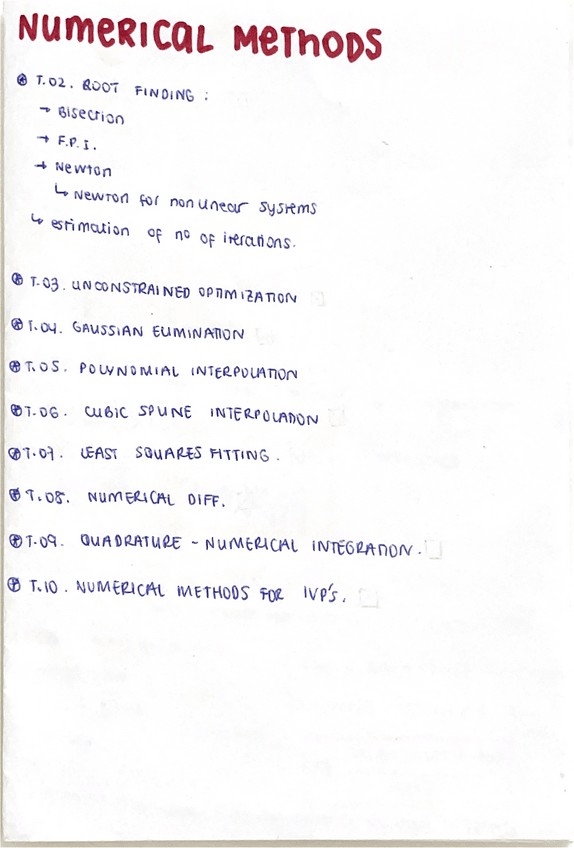 NUMERICAL METHODS
⊛ T.02. ROOT FINDING :
→ Bisection
→ F.P.I.
→ Newton
↳ Newton for nonlinear systems
↳ estimation of nº of iterations.
⊛ T.03. UNCONSTRAINED OPTIMIZATION
⊛ T.04. GAUSSIAN ELIMINATION
⊛ T.05. POLYNOMIAL INTERPOLATION
⊛ T.06. CUBIC SPLINE INTERPOLATION
⊛ T.07. LEAST SQUARES FITTING.
⊛ T.08. NUMERICAL DIFF.
⊛ T.09. QUADRATURE - NUMERICAL INTEGRATION.
⊛ T.10. NUMERICAL METHODS FOR IVP'S.